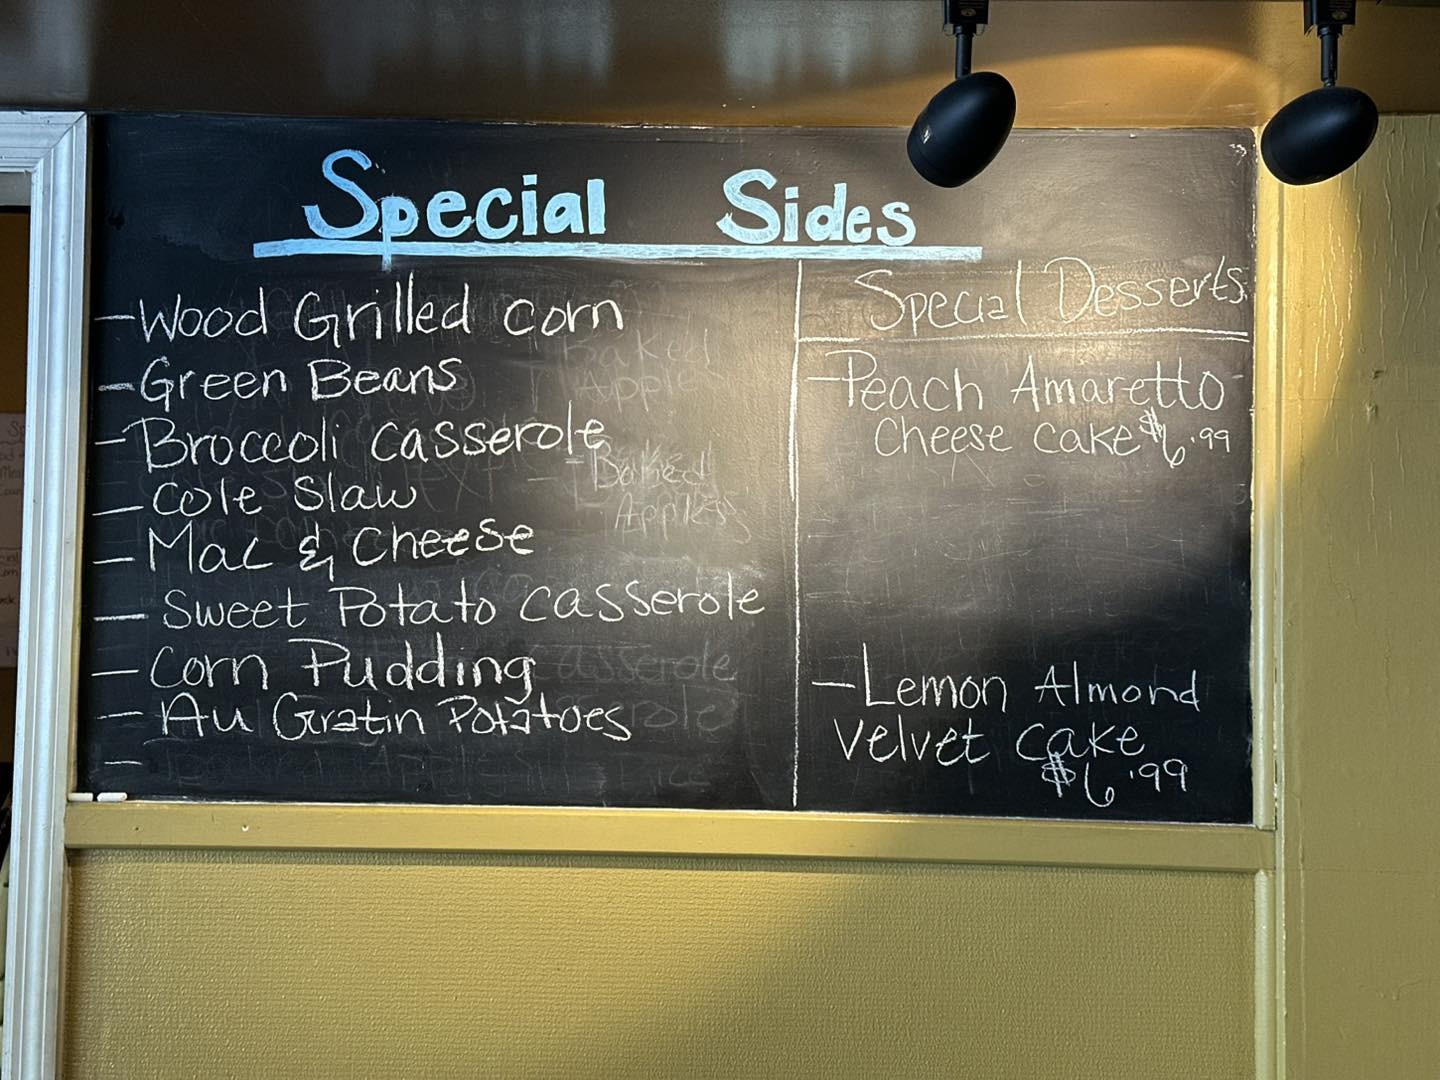 Special Sides
- Wood Grilled Corn
- Green Beans
- Broccoli Casserole
- Cole Slaw
- Mac & Cheese
- Sweet Potato Casserole
- Corn Pudding
- Au Gratin Potatoes
-
Baked
Apples
- Baked
Apples
Casserole
Special Desserts
- Peach Amaretto
Cheese Cake $6.99
- Lemon Almond
Velvet Cake
$6.99